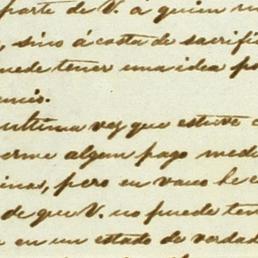 parte de V. á quien
, sino á costa de sacrifi
uede tener una idea po
encio.
ultima vez que estuve
erme algun pago med
inas, pero en vano he
de que V. no puede ten
en un estado de verdad